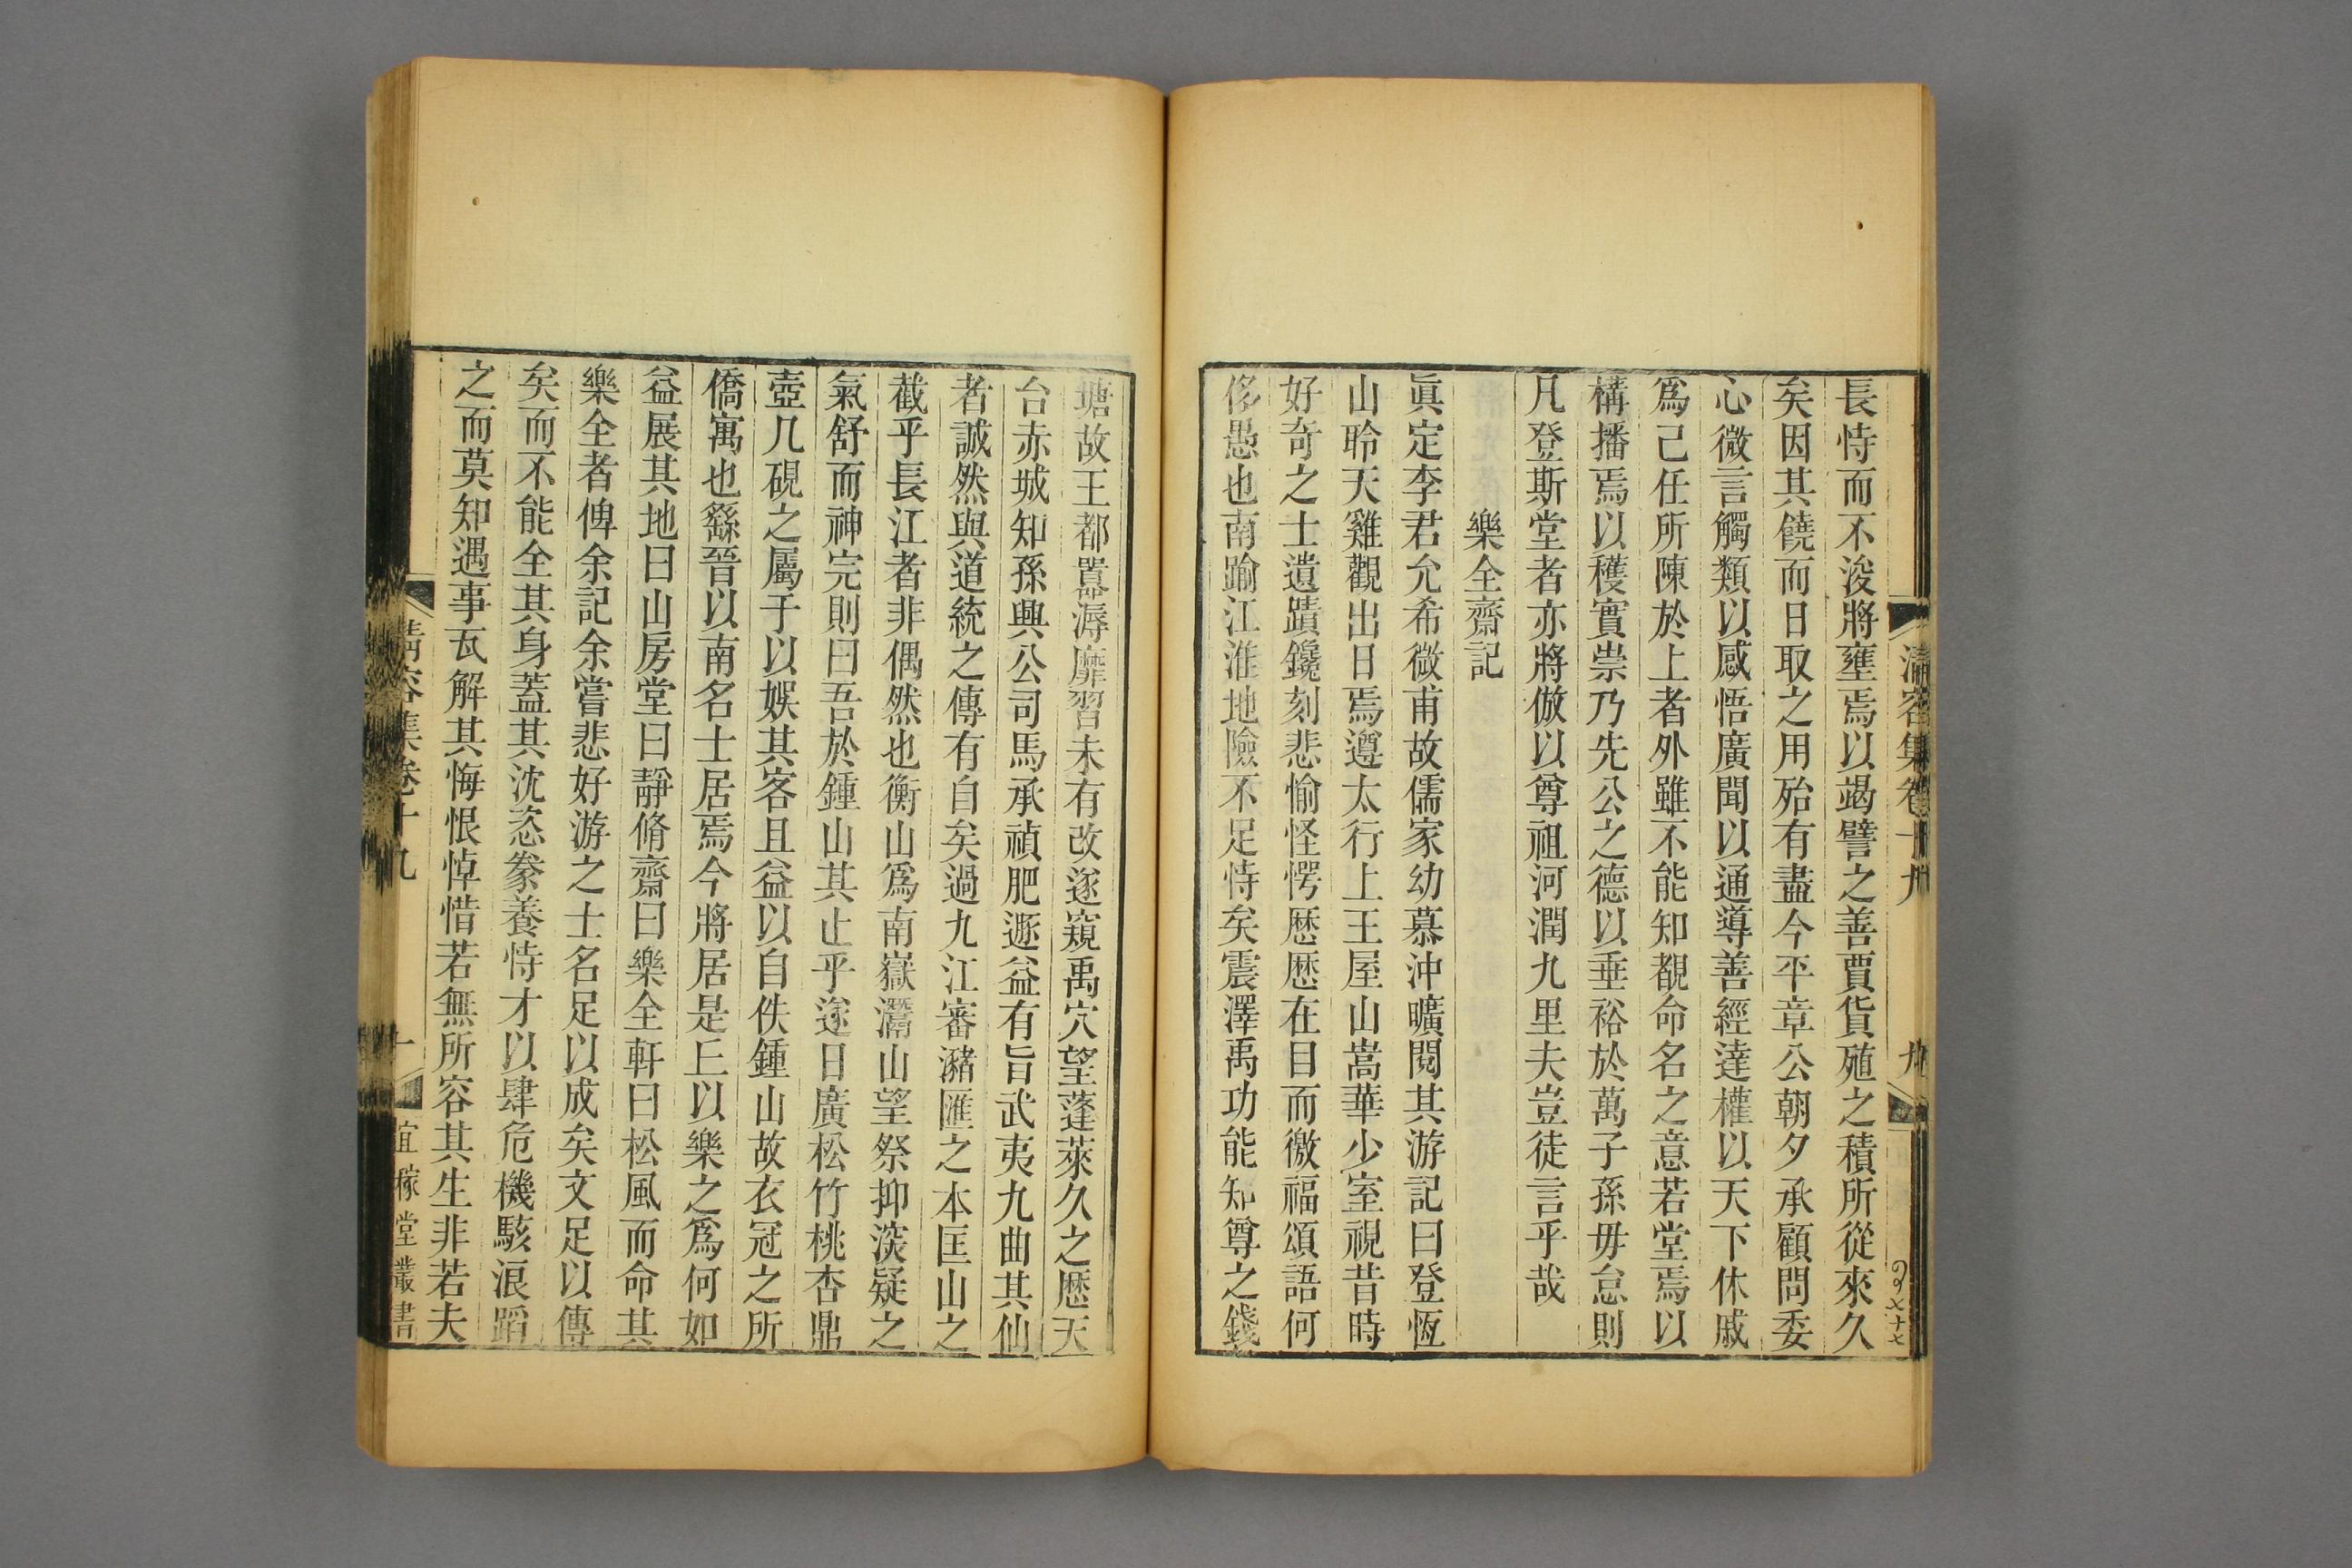 長恃而不浚將壅焉以竭譬之善賈貨殖之積所從來久
矣因其饒而日取之用殆有盡今平章公朝夕承顧問委
心微言觸類以感悟廣聞以通導善經達權以天下休戚
爲己任所陳於上者外雖不能知覩命名之意若堂焉以
構播焉以穫實祟乃先公之德以垂裕於萬子孫毋怠則
凡登斯堂者亦將倣以尊祖河潤九里夫豈徒言乎哉
樂全齋記
眞定李君允希微甫故儒家幼慕沖曠閱其游記曰登恆
山聆天雞觀出日焉遵太行上王屋山嵩華少室視昔時
好奇之士遺蹟鑱刻悲愉怪愕歷歷在目而徼福頌語何
侈愚也南踰江淮地險不足恃矣震澤禹功能知尊之錢
塘故王都嚣溽靡習未有改遂窺禹穴望蓬萊久之歷天
台赤城知孫興公司馬承禎肥遯益有旨武夷九曲其仙
者誠然與道統之傳有自矣過九江審瀦匯之本匡山之
截乎長江者非偶然也衡山爲南嶽灊山望祭抑淡疑之
氣舒而神完則曰吾於鍾山其止乎遂日廣松竹桃杏鼎
壺几硯之屬于以娛其客且益以自佚鍾山故衣冠之所
僑寓也繇晉以南名士居焉今將居是丘以樂之爲何如
益展其地曰山房堂曰靜脩齋曰樂全軒曰松風而命其
樂全者俾余記余嘗悲好游之士名足以成矣文足以傳
矣而不能全其身蓋其沈恣豢養恃才以肆危機駭浪蹈
之而莫知遇事瓦解其悔恨悼惜若無所容其生非若夫
清容集卷十九
九
清容集卷十九
宜稼堂叢書